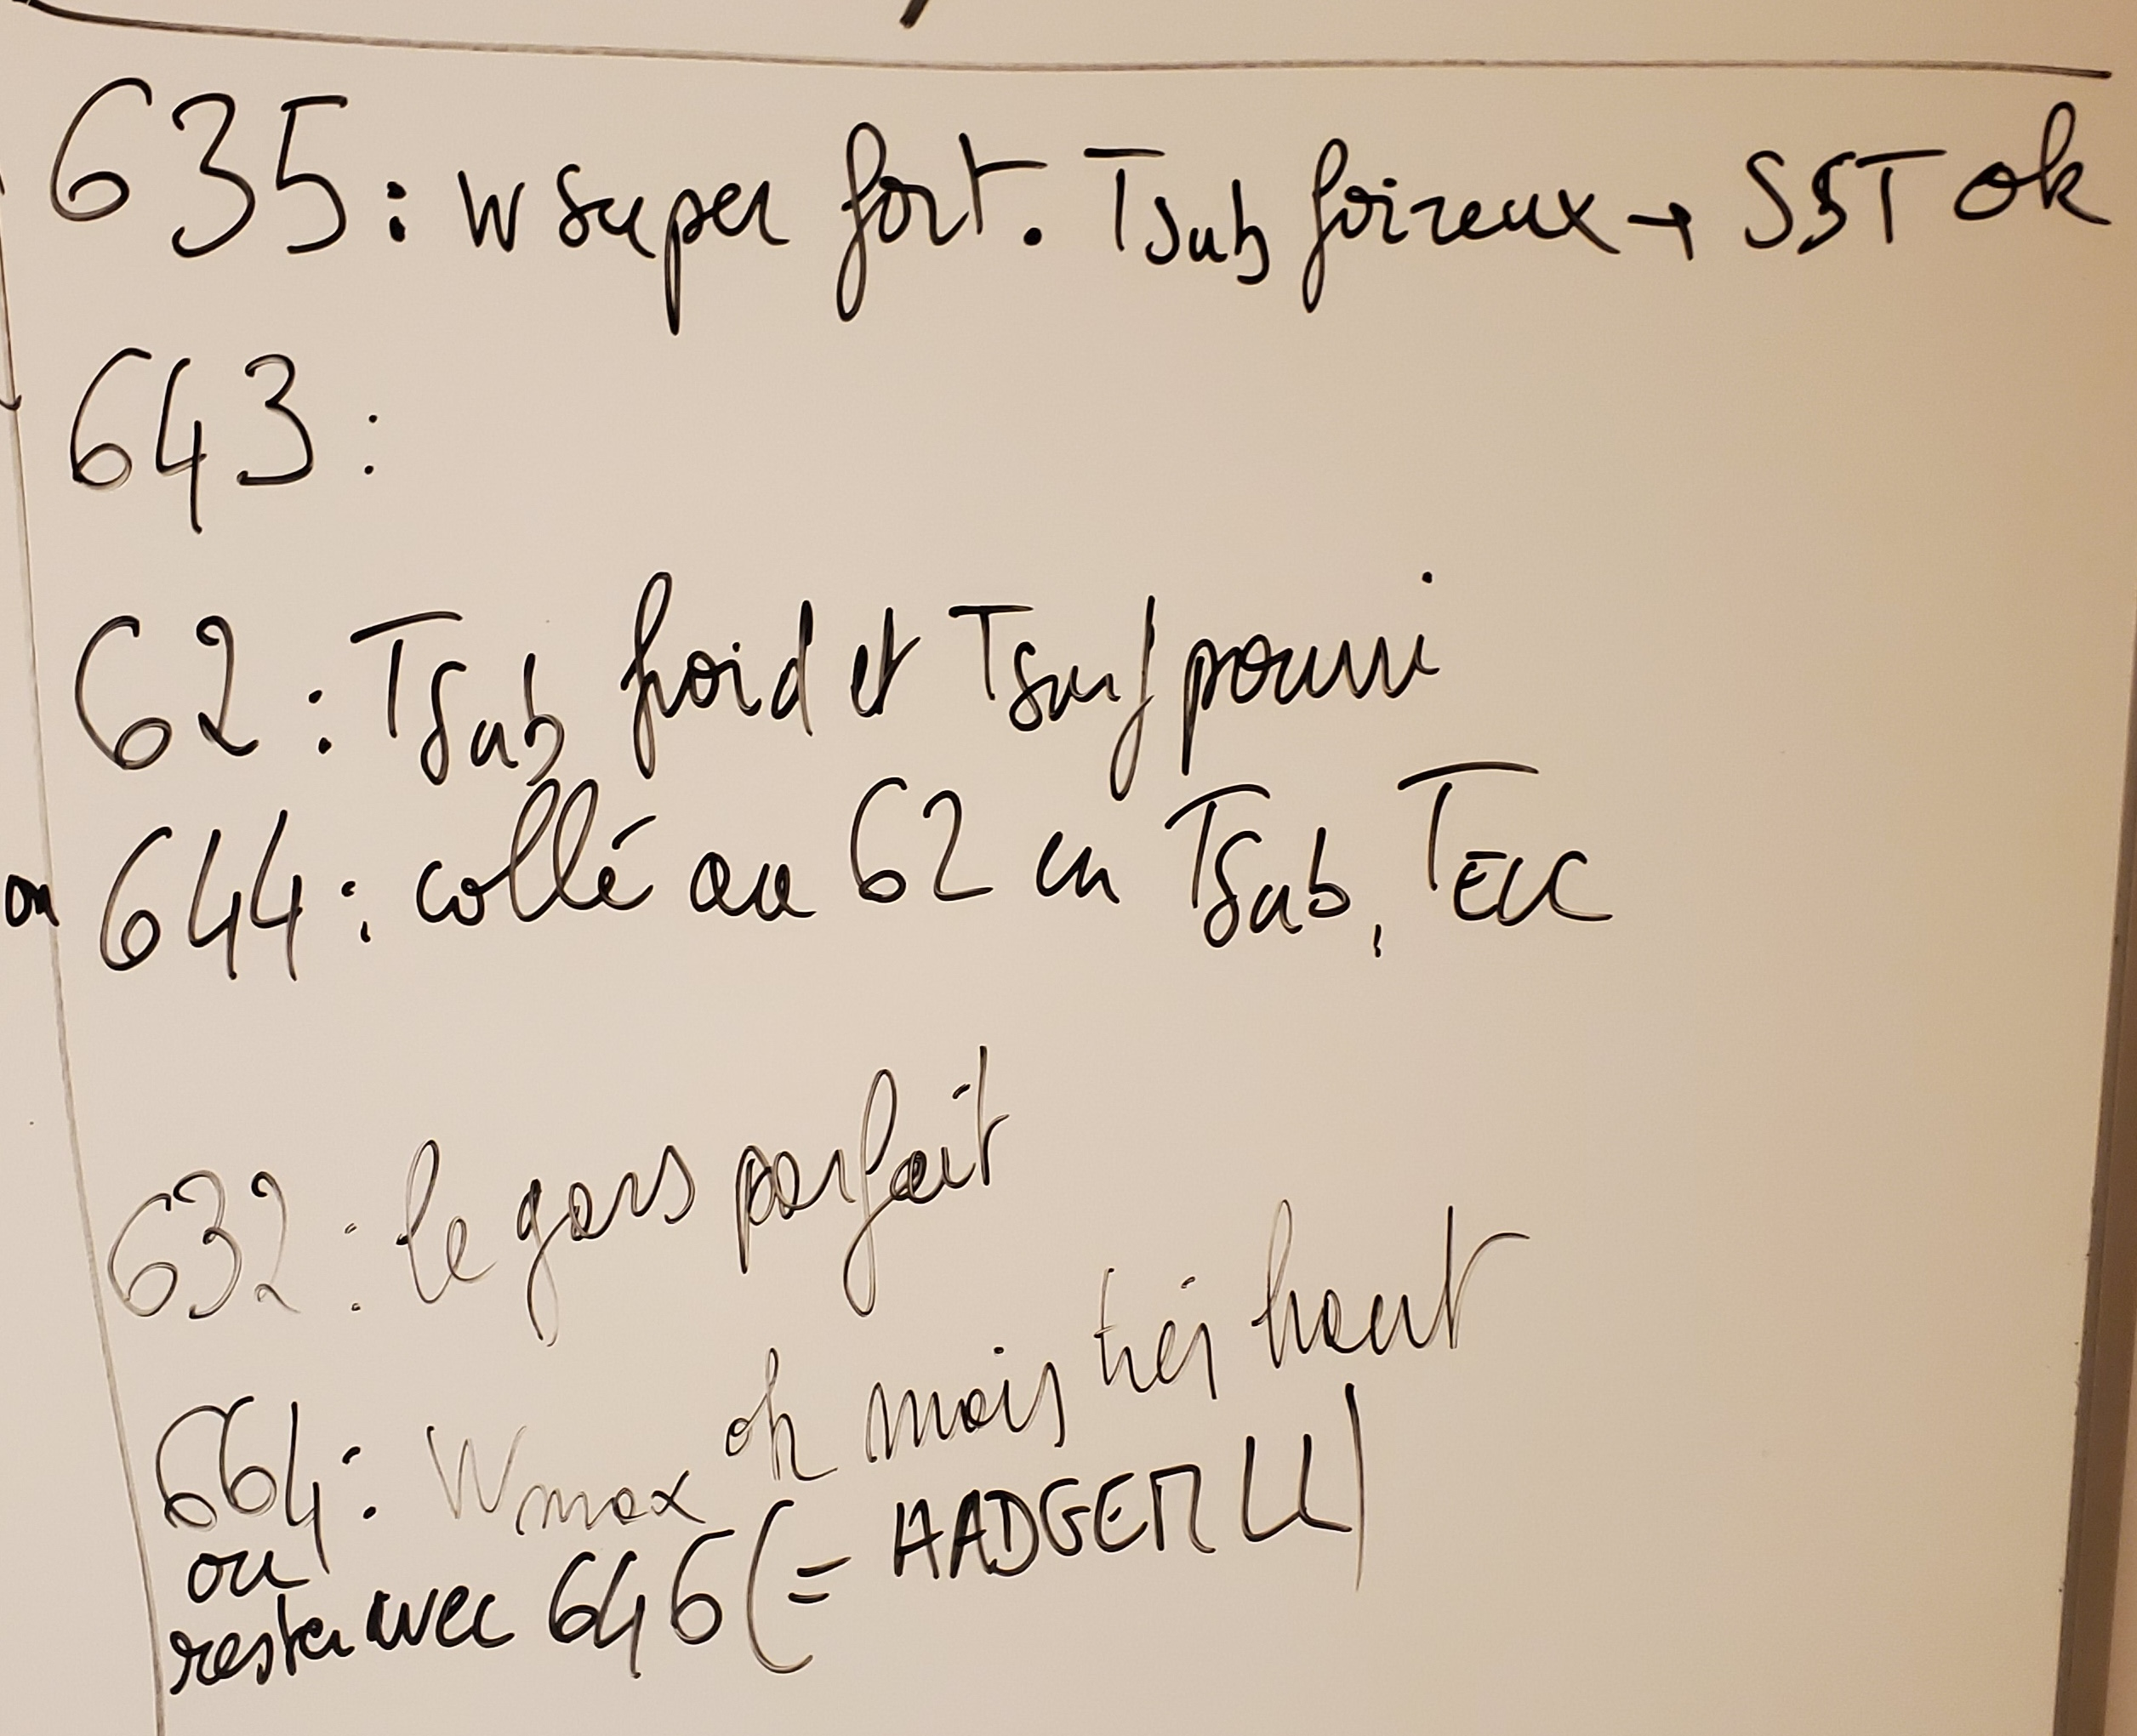 635: w super fort. Tsub foireux → SST ok
643:
62: Tsub froid et Tsurf pourri
ou 644: collé au 62 en Tsub, TEUC
632: le gars parfait
664: Wmax ok mais très haut
ou
rester avec 646 (= HADGEM LL)